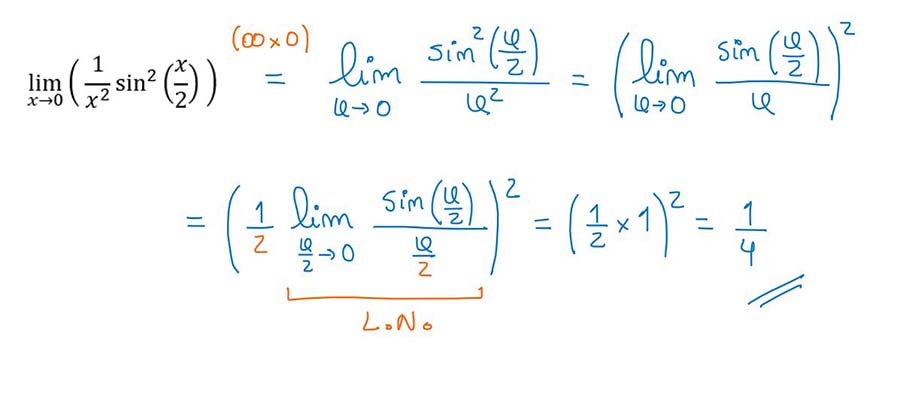 lim x→0 (1/x² sin²(x/2)) (∞×0) = lim x→0 sin²(x/2)/x² = (lim x→0 sin(x/2)/x)²
= (1/2 lim x/2→0 sin(x/2)/(x/2))² = (1/2 × 1)² = 1/4
L.N.